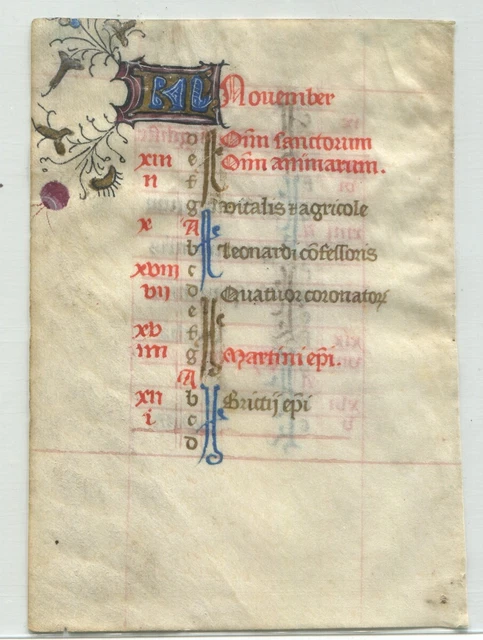 KAL November
d Om̄ sanctorum
xiii e Om̄ animarum.
ii f
g Vitalis ⁊ agricole
x A
b Leonardi cōfessoris
xviii c
vii d Quatuor coronatoꝝ
e
xv f
iiii g Martini ep̄i.
A
xii b Brictij ep̄i
i c
d